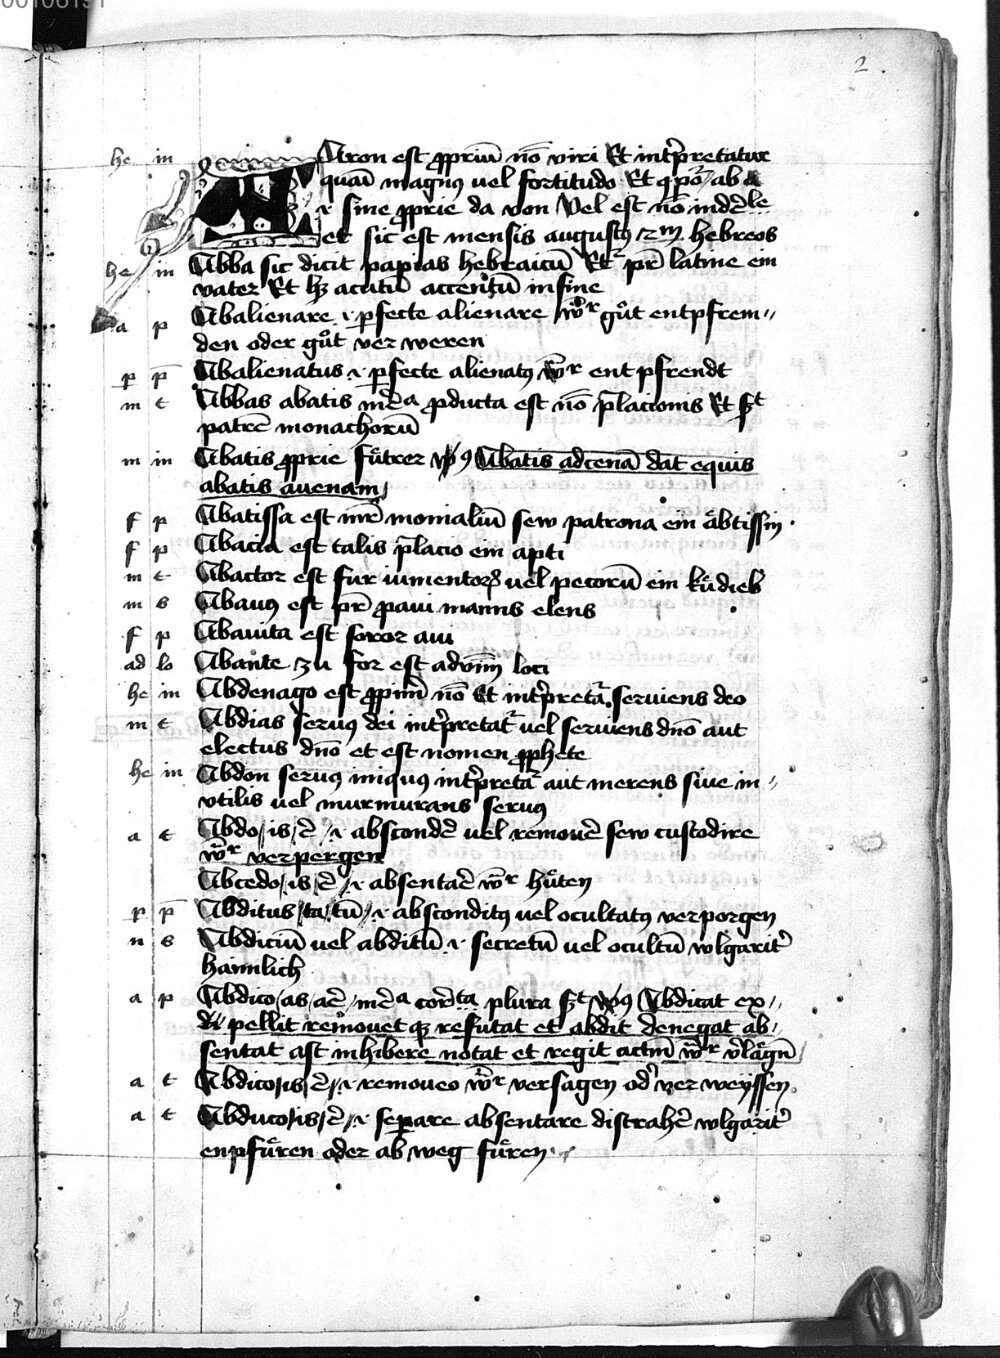 00106191
2
he in Aaron est ꝓpriū nō viri Et int̄pretatur
quasi magnus vel fortitudo Et ab a
sine ꝓprie da von Vel est nō indecl̄e
et sic est mensis augusty hebreos
he in Abba sic dicit papias hebraicū Et pr̄ latine ein
vater Et hꝫ acutū accentū in fine
a p Abalienare .i. ꝑfecte alienare gůt entpfrem
den oder gůt ver weren
p p̄ Abalienatus .i. ꝑfecte alienatꝰ ent pfrendt
m t Abbas abatis ꝓducta est nō p̄lacionis Et
patrē monachorū
m in Abatis ꝓprie fůtrer Abatis ad cenā dat equis
abatis auenam
f p Abatissa est mr̄ē monialiū sew patrona ein åbtissin
f p Abacia est talis p̄lacio ein apti
m t Abactor est fur iumentorꝝ vel pecorū ein ků dieb
m s Abauꝰ est pr̄ ꝓaui manns elens
f p Abauita est soror aui
ad lo Abante zu for est loci
he in Abdenago est nō Et int̄pretat̄ seruiens deo
m t Abdias seruꝰ dei int̄pretat̄ vel seruiens dn̄o aut
electus dn̄o et est nomen ꝓphete
he in Abdon seruꝰ iniquꝰ int̄pretat̄ aut merens siue in
vtilis vel murmurans seruꝰ
a t Abdo/is/ē/.i. abscondē vel remouē sew custodire
verpergen
Abcedo/is/ē/.i. absentaē hůten
p p̄ Abditus/ta/tū/.i. absconditꝰ vel ocultatꝰ verporgen
n s Abdiciū vel abditū .i. secretū vel ocultū wlgarit̄
haimlich
a p Abdico/as/aē/ plura Abdicat ex
pellit remouet qꝫ refutat et abdit denegat ab
sentat ast inhibere notat et regit
a t Abdico/is/ē/.i. remoueo versagen od̄ ver weyssen
a t Abduco/is/ē/.i. seꝑare absentare distrahē wlgarit̄
enpfůren oder ab weg fůren